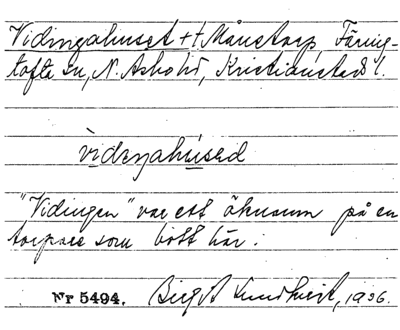 Vidingahuset tt Månstorp, Färing-
tofta sn, N. Åsbo hd, Kristianstads l.
vidiŋahúsəd
"Vidingen" var ett öknamn på en
torpare som bott här.
Nr 5494. Birgit Lundkvist, 1936.